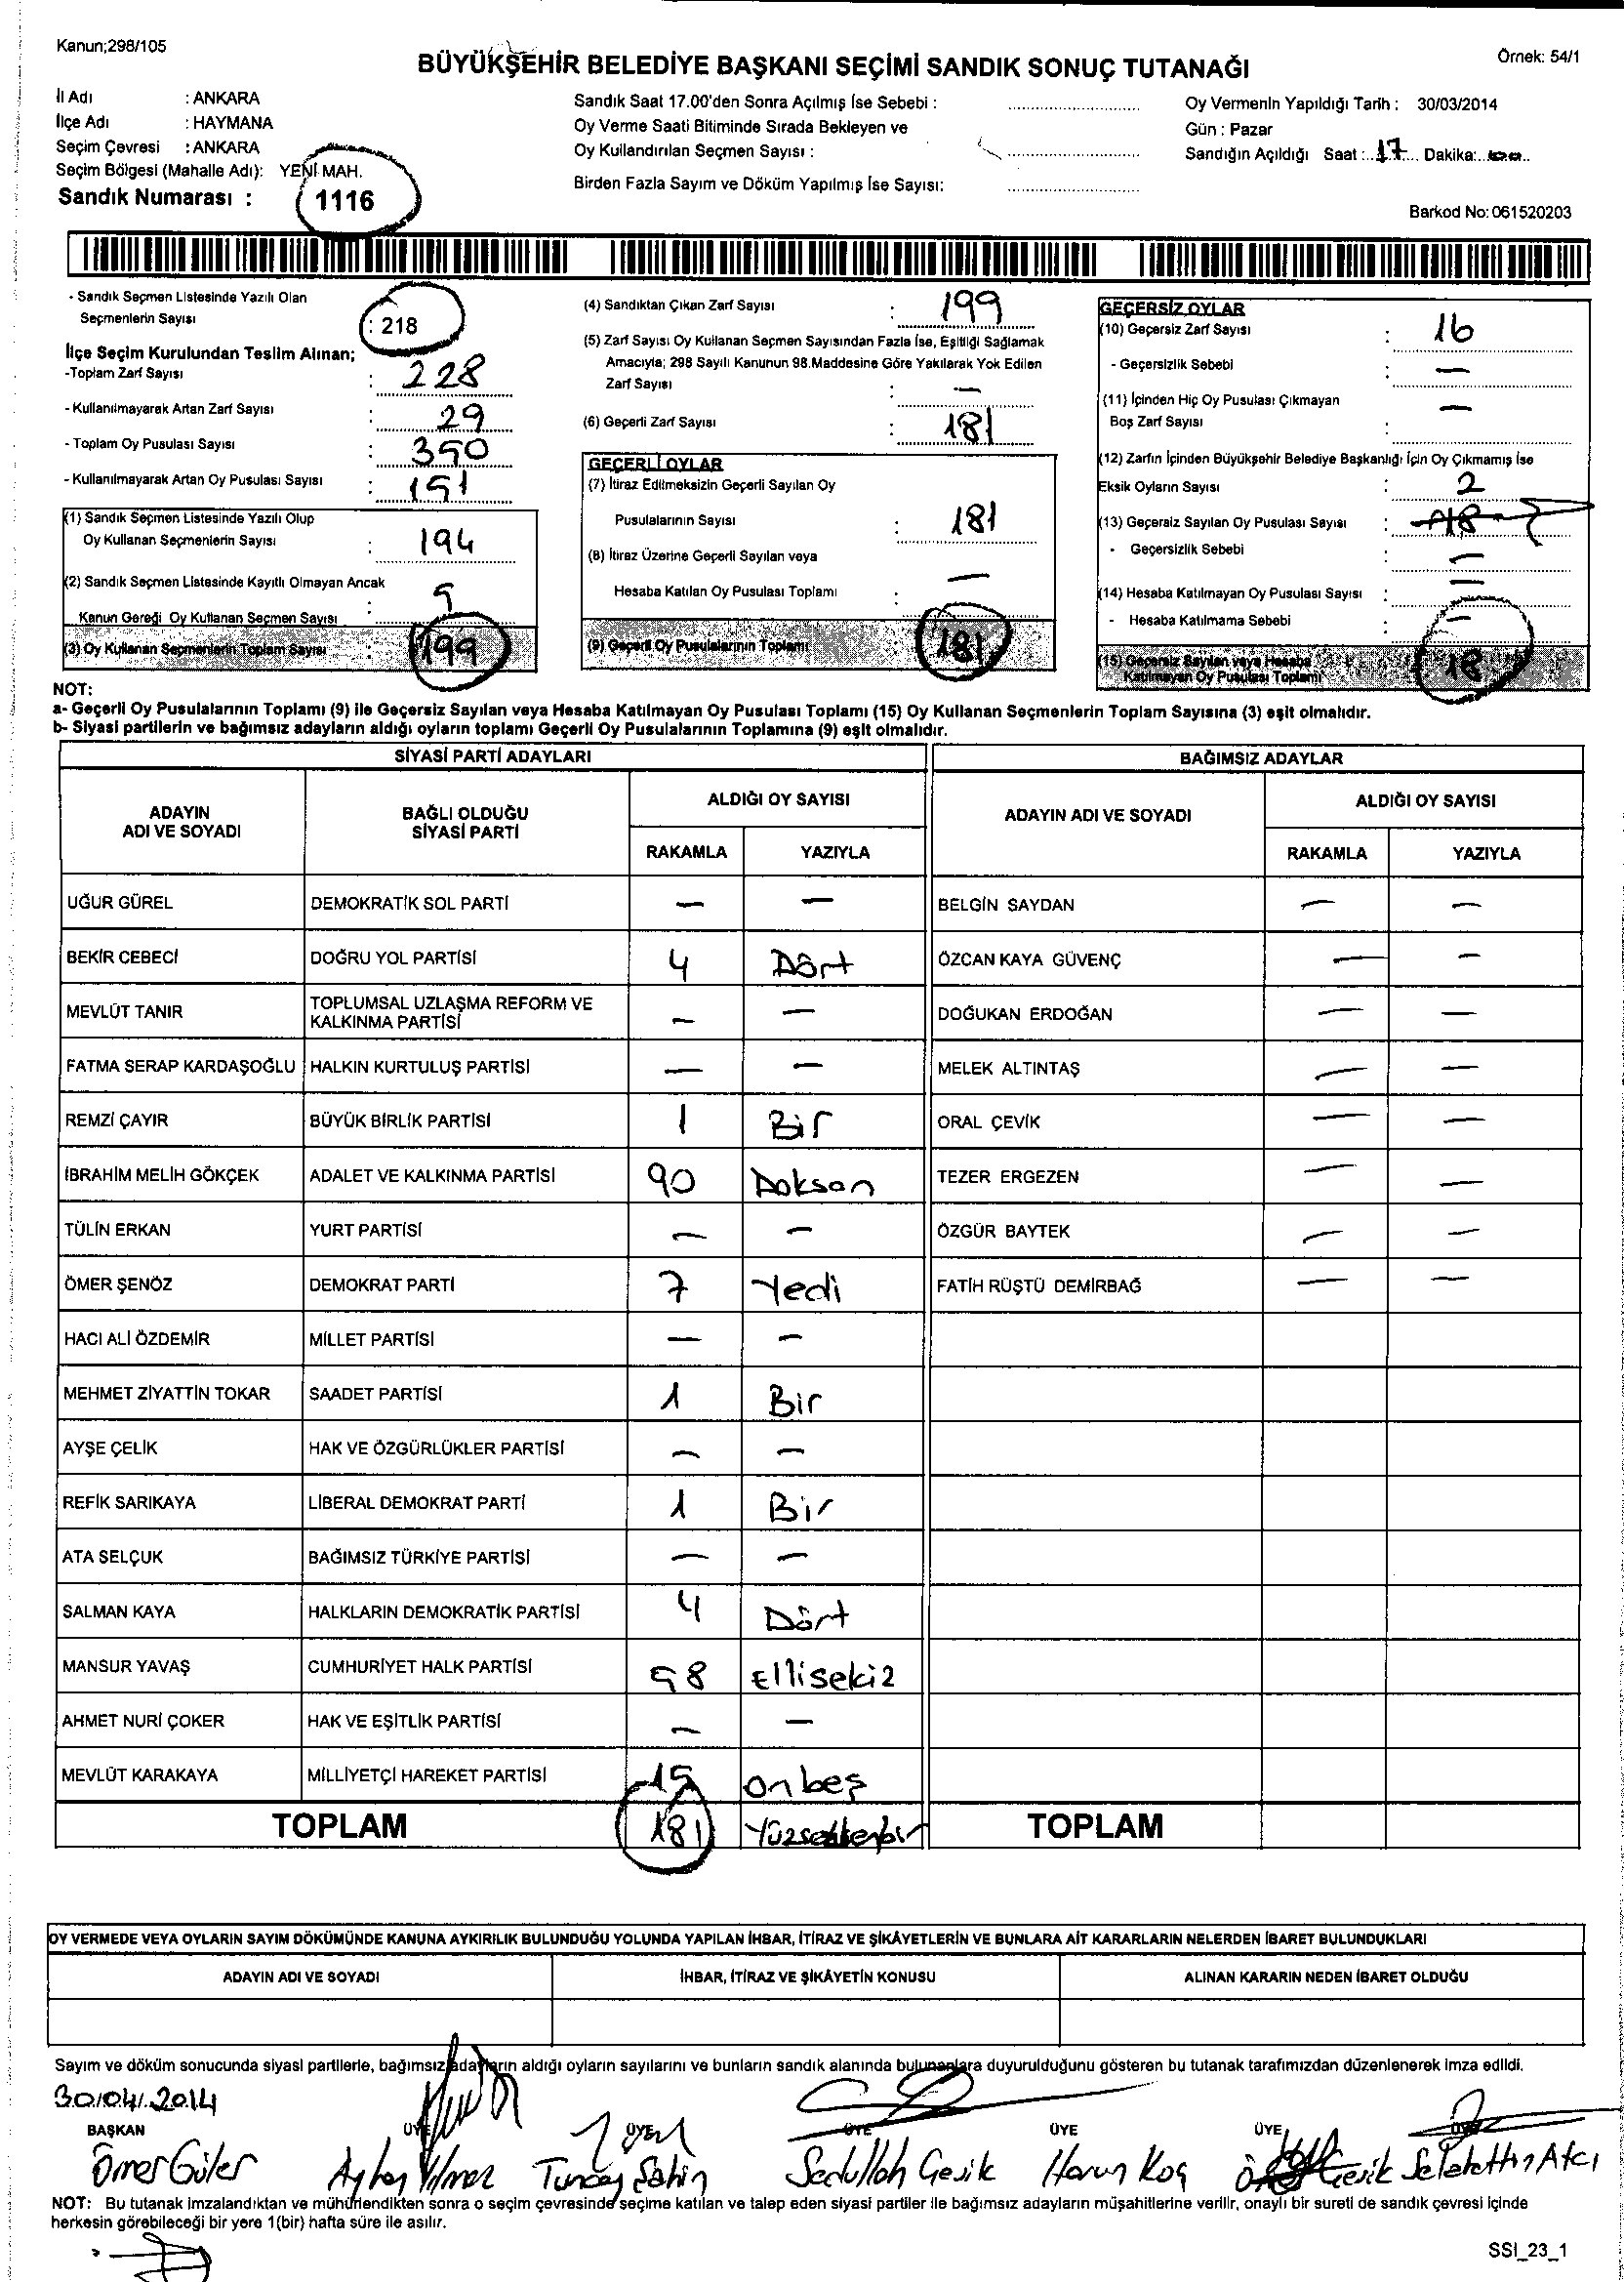 Kanun;298/105
Örnek: 54/1
BÜYÜKŞEHİR BELEDİYE BAŞKANI SEÇİMİ SANDIK SONUÇ TUTANAĞI
İl Adı : ANKARA
İlçe Adı : HAYMANA
Seçim Çevresi : ANKARA
Seçim Bölgesi (Mahalle Adı): YENİ MAH.
Sandık Numarası : 1116
Sandık Saat 17.00'den Sonra Açılmış İse Sebebi :
Oy Verme Saati Bitiminde Sırada Bekleyen ve
Oy Kullandırılan Seçmen Sayısı :
Birden Fazla Sayım ve Döküm Yapılmış İse Sayısı:
Oy Vermenin Yapıldığı Tarih : 30/03/2014
Gün : Pazar
Sandığın Açıldığı Saat : 17 Dakika:
Barkod No: 061520203
- Sandık Seçmen Listesinde Yazılı Olan
Seçmenlerin Sayısı : 218
İlçe Seçim Kurulundan Teslim Alınan;
-Toplam Zarf Sayısı : 228
- Kullanılmayarak Artan Zarf Sayısı : 29
- Toplam Oy Pusulası Sayısı : 350
- Kullanılmayarak Artan Oy Pusulası Sayısı : 151
(1) Sandık Seçmen Listesinde Yazılı Olup
Oy Kullanan Seçmenlerin Sayısı : 194
(2) Sandık Seçmen Listesinde Kayıtlı Olmayan Ancak
Kanun Gereği Oy Kullanan Seçmen Sayısı : 5
(3) Oy Kullanan Seçmenlerin Toplam Sayısı : 199
(4) Sandıktan Çıkan Zarf Sayısı : 199
(5) Zarf Sayısı Oy Kullanan Seçmen Sayısından Fazla İse, Eşitliği Sağlamak
Amacıyla; 298 Sayılı Kanunun 98.Maddesine Göre Yakılarak Yok Edilen
Zarf Sayısı : —
(6) Geçerli Zarf Sayısı : 181
GEÇERLİ OYLAR
(7) İtiraz Edilmeksizin Geçerli Sayılan Oy
Pusulalarının Sayısı : 181
(8) İtiraz Üzerine Geçerli Sayılan veya
Hesaba Katılan Oy Pusulası Toplamı : —
(9) Geçerli Oy Pusulalarının Toplamı 181
GEÇERSİZ OYLAR
(10) Geçersiz Zarf Sayısı : 16
- Geçersizlik Sebebi : —
(11) İçinden Hiç Oy Pusulası Çıkmayan
Boş Zarf Sayısı : —
(12) Zarfın İçinden Büyükşehir Belediye Başkanlığı İçin Oy Çıkmamış İse
Eksik Oyların Sayısı : 2
(13) Geçersiz Sayılan Oy Pusulası Sayısı : 18
- Geçersizlik Sebebi : —
(14) Hesaba Katılmayan Oy Pusulası Sayısı : —
- Hesaba Katılmama Sebebi : —
(15) Geçersiz Sayılan veya Hesaba
Katılmayan Oy Pusulası Toplamı 18
NOT:
a- Geçerli Oy Pusulalarının Toplamı (9) ile Geçersiz Sayılan veya Hesaba Katılmayan Oy Pusulası Toplamı (15) Oy Kullanan Seçmenlerin Toplam Sayısına (3) eşit olmalıdır.
b- Siyasi partilerin ve bağımsız adayların aldığı oyların toplamı Geçerli Oy Pusulalarının Toplamına (9) eşit olmalıdır.
SİYASİ PARTİ ADAYLARI BAĞIMSIZ ADAYLAR
ADAYIN ADI VE SOYADI BAĞLI OLDUĞU SİYASİ PARTİ ALDIĞI OY SAYISI ADAYIN ADI VE SOYADI ALDIĞI OY SAYISI
RAKAMLA YAZIYLA RAKAMLA YAZIYLA
UĞUR GÜREL DEMOKRATİK SOL PARTİ — — BELGİN SAYDAN — —
BEKİR CEBECİ DOĞRU YOL PARTİSİ 4 Dört ÖZCAN KAYA GÜVENÇ — —
MEVLÜT TANIR TOPLUMSAL UZLAŞMA REFORM VE KALKINMA PARTİSİ — — DOĞUKAN ERDOĞAN — —
FATMA SERAP KARDAŞOĞLU HALKIN KURTULUŞ PARTİSİ — — MELEK ALTINTAŞ — —
REMZİ ÇAYIR BÜYÜK BİRLİK PARTİSİ 1 Bir ORAL ÇEVİK — —
İBRAHİM MELİH GÖKÇEK ADALET VE KALKINMA PARTİSİ 90 Doksan TEZER ERGEZEN — —
TÜLİN ERKAN YURT PARTİSİ — — ÖZGÜR BAYTEK — —
ÖMER ŞENÖZ DEMOKRAT PARTİ 7 Yedi FATİH RÜŞTÜ DEMİRBAĞ — —
HACI ALİ ÖZDEMİR MİLLET PARTİSİ — —
MEHMET ZİYATTİN TOKAR SAADET PARTİSİ 1 Bir
AYŞE ÇELİK HAK VE ÖZGÜRLÜKLER PARTİSİ — —
REFİK SARIKAYA LİBERAL DEMOKRAT PARTİ 1 Bir
ATA SELÇUK BAĞIMSIZ TÜRKİYE PARTİSİ — —
SALMAN KAYA HALKLARIN DEMOKRATİK PARTİSİ 4 Dört
MANSUR YAVAŞ CUMHURİYET HALK PARTİSİ 58 Ellisekiz
AHMET NURİ ÇOKER HAK VE EŞİTLİK PARTİSİ — —
MEVLÜT KARAKAYA MİLLİYETÇİ HAREKET PARTİSİ 15 Onbeş
TOPLAM 181 Yüzseksenbir TOPLAM
OY VERMEDE VEYA OYLARIN SAYIM DÖKÜMÜNDE KANUNA AYKIRILIK BULUNDUĞU YOLUNDA YAPILAN İHBAR, İTİRAZ VE ŞİKÂYETLERİN VE BUNLARA AİT KARARLARIN NELERDEN İBARET BULUNDUKLARI
ADAYIN ADI VE SOYADI İHBAR, İTİRAZ VE ŞİKÂYETİN KONUSU ALINAN KARARIN NEDEN İBARET OLDUĞU
Sayım ve döküm sonucunda siyasi partilerle, bağımsız adayların aldığı oyların sayılarını ve bunların sandık alanında bulunanlara duyurulduğunu gösteren bu tutanak tarafımızdan düzenlenerek imza edildi.
30/04/2014
BAŞKAN ÜYE ÜYE ÜYE ÜYE ÜYE ÜYE
Ömer Güler Ayhan Yılmaz Tuncay Şahin Sedullah Gevik Harun Koç Gevik Selahettin Atcı
NOT: Bu tutanak imzalandıktan ve mühürlendikten sonra o seçim çevresinde seçime katılan ve talep eden siyasi partiler ile bağımsız adayların müşahitlerine verilir, onaylı bir sureti de sandık çevresi içinde
herkesin görebileceği bir yere 1(bir) hafta süre ile asılır.
SSI_23_1